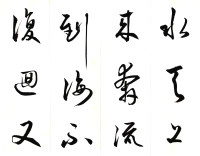 水天上
来奔流
到海不
復迴又